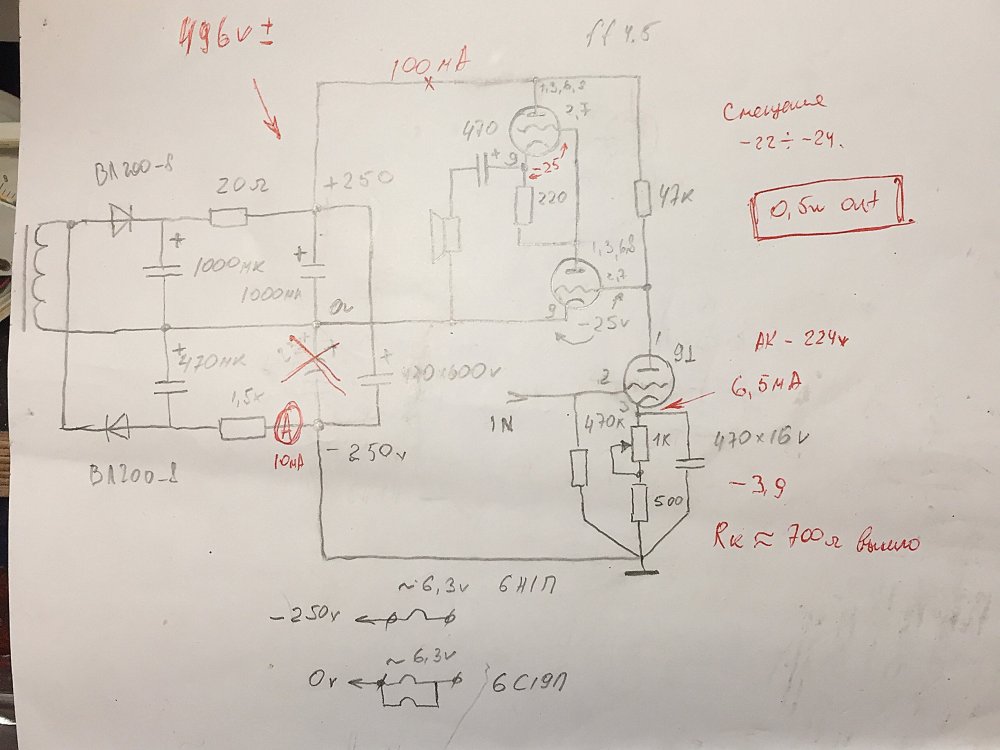 496v ±
100 мА
ff 4.5
1,3,6,8
2,7
470
+
9
-25
220
Смещение
-22 ÷ -24.
0,5w out
ВЛ200-8
20Ω
+250
47к
+
1000мк
+
1000мк
0v
1,3,6,8
2,7
9
-25v
+
470мк
+
470x600v
1,5к
A
10мА
-250v
ВЛ200-8
1
2
3
IN
470к
1к
500
470x16v
АК - 224v
6,5мА
-3,9
Rк ≈ 700Ω вышло
~6,3v 6Н1П
-250v
~6,3v
0v
6С19П